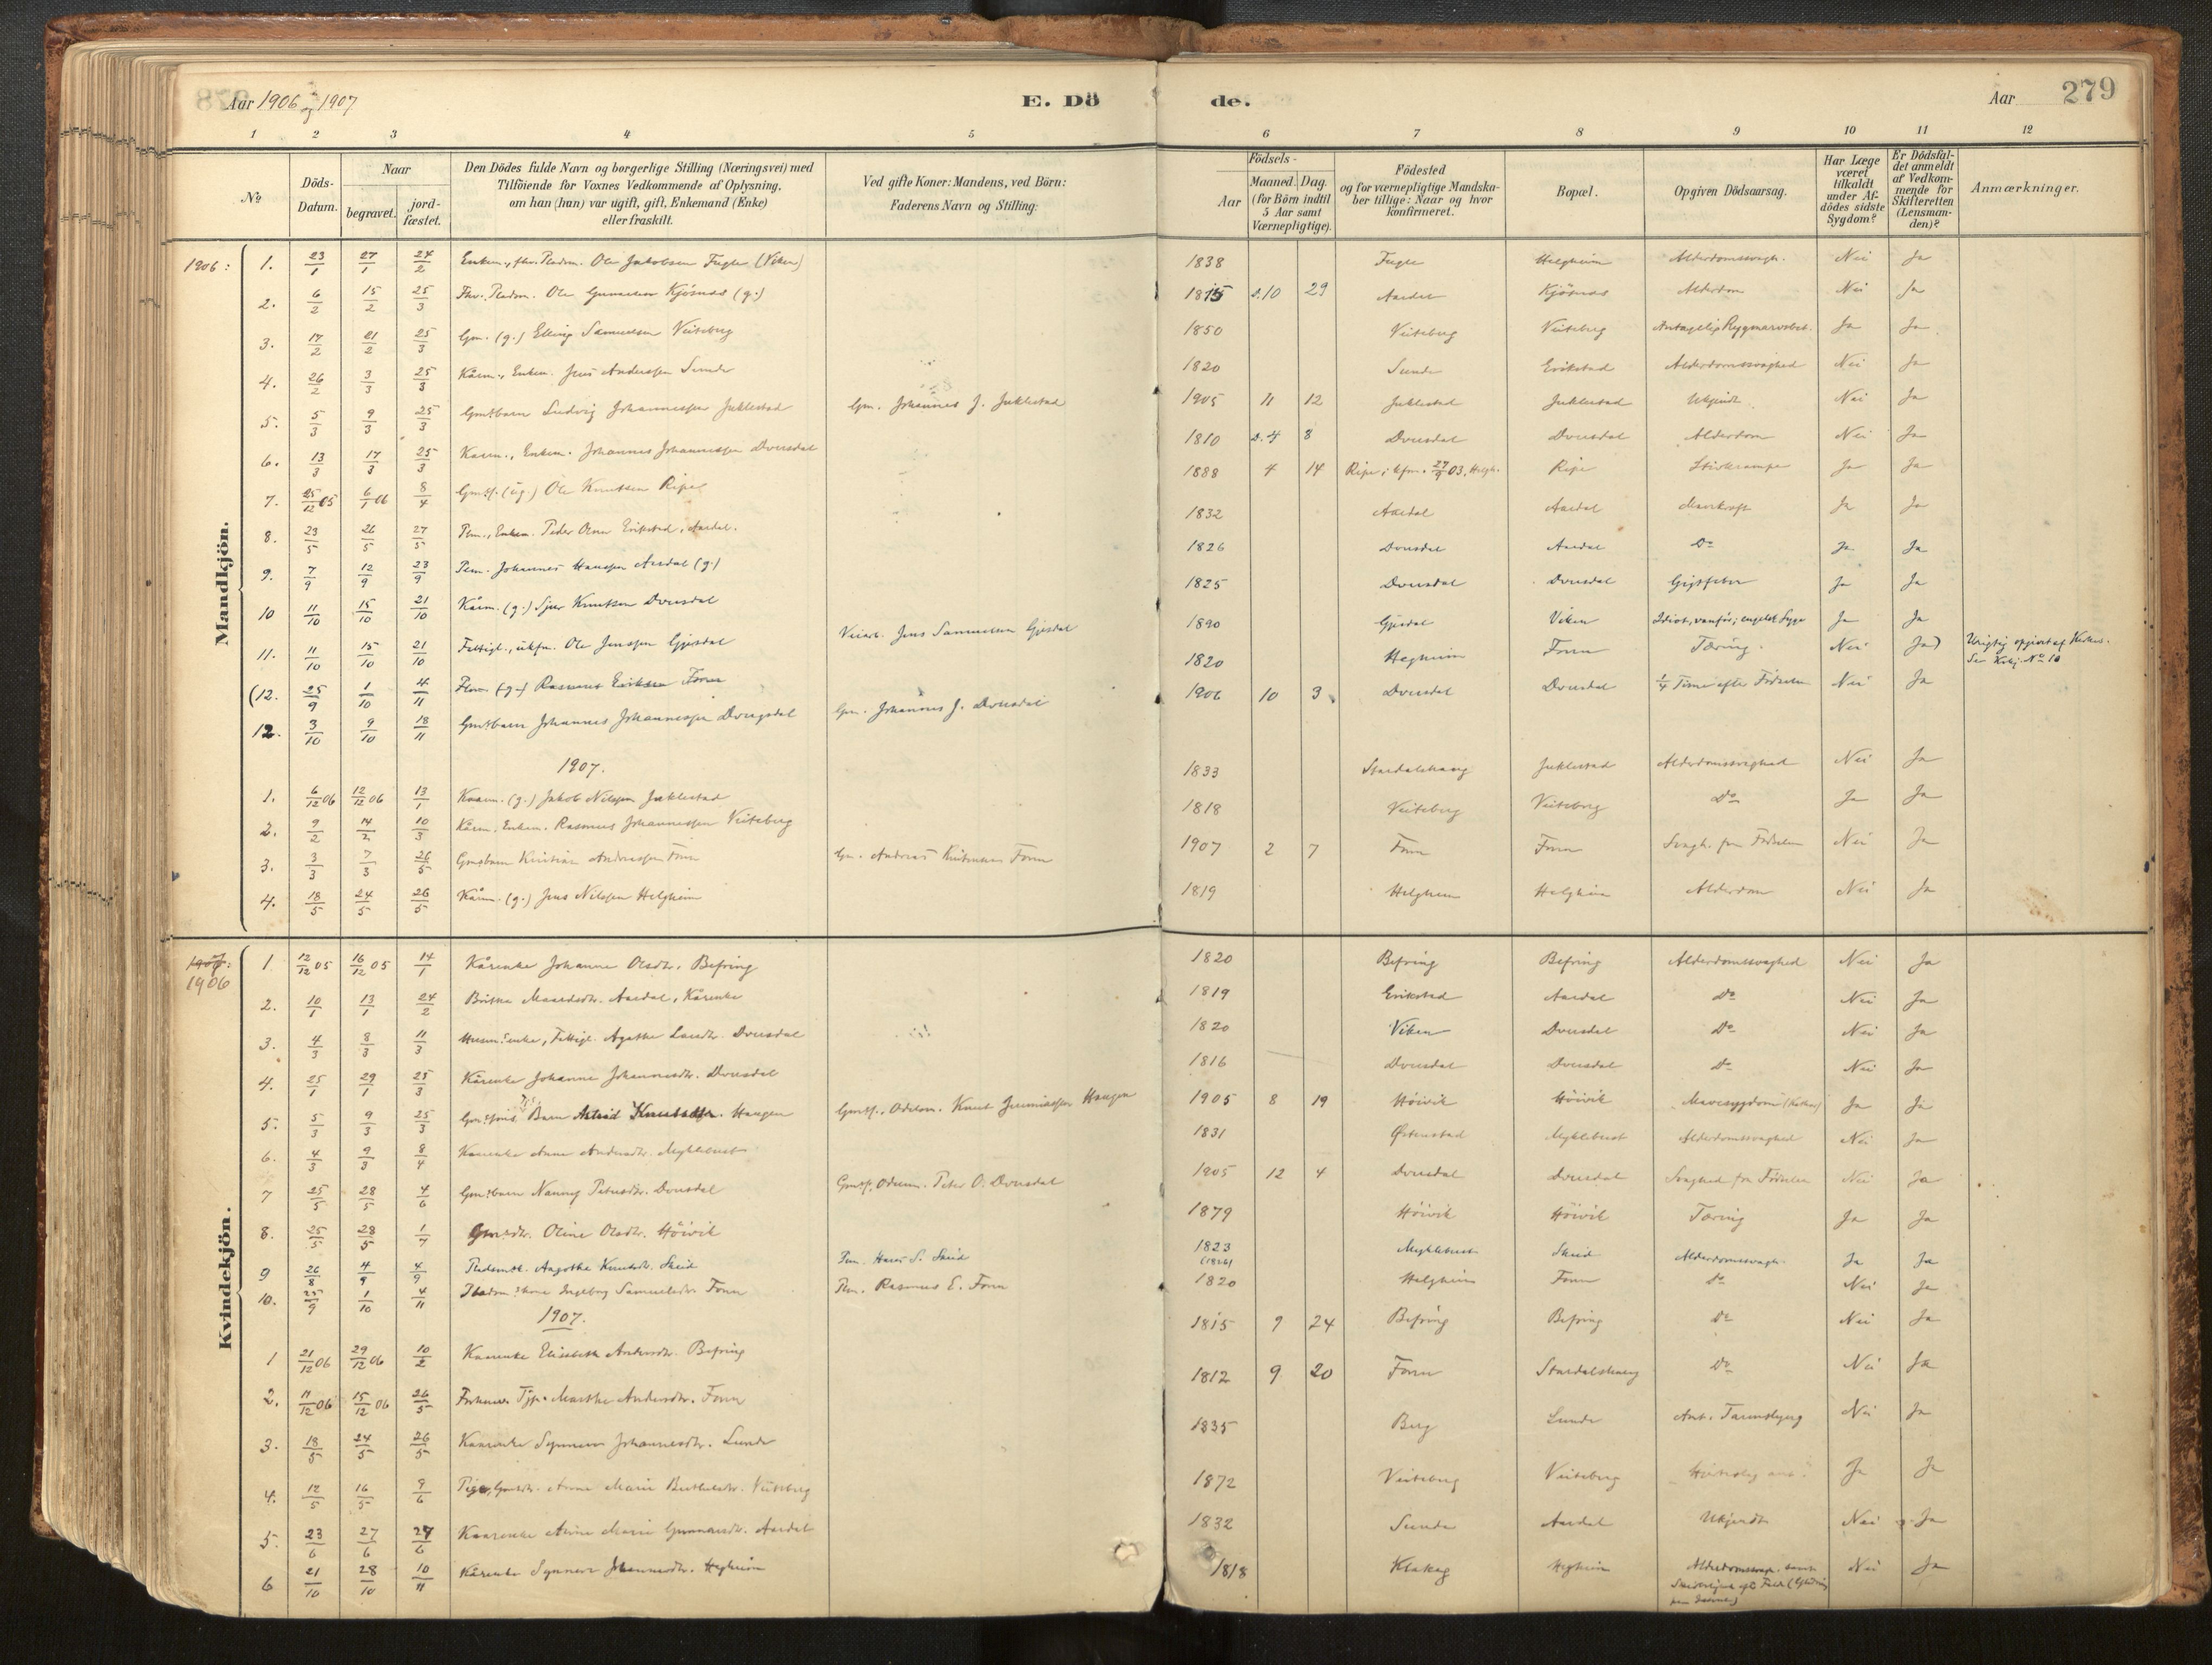 Aar 1906 og 1907
E. Dö de.
Aar 279
1 2 3 4 5 6 7 8 9 10 11 12
No
Döds-Datum.
Naar
begravet.
jord-fæstet.
Den Dödes fulde Navn og borgerlige Stilling (Næringsvei) med
Tilföiende for Voxnes Vedkommende af Oplysning,
om han (hun) var ugift, gift, Enkemand (Enke)
eller fraskilt.
Ved gifte Koner: Mandens, ved Börn:
Faderens Navn og Stilling:
Födsels-
Aar
Maaned. Dag.
(for Börn indtil
5 Aar samt
Værnepligtige).
Födested
og for værnepligtige Mandska-
ber tillige: Naar og hvor
konfirmeret.
Bopæl.
Opgiven Dödsaarsag.
Har Læge
været
tilkaldt
under Af-
dödes sidste
Sygdom?
Er Dödsfal-
det anmeldt
af Vedkom-
mende for
Skifteretten
(Lensman-
den)?
Anmærkninger.
Mandkjön.
1906: 1. 23/1 27/1 24/2 Enkem., fhv. Pladsm. Ole Jakobsen Fugle (Viken) 1838 Fugle Helgheim Alderdomssvagh. Nei Ja
2. 6/2 15/2 25/3 Fhv. Pladsm. Ole Gunnarsen Kjösnes (g.) 1815 d. 10 29 Aardal Kjösnes Alderdom Nei Ja
3. 17/2 21/2 25/3 Gm. (g.) Elling Samuelsen Veiteberg 1850 Veiteberg Veiteberg Antagelig Rygmarvsbet. Ja Ja
4. 26/2 3/3 25/3 Kårm., Enkem. Jens Anderssen Sunde 1820 Sunde Erikstad Alderdomssvaghed Nei Ja
5. 5/3 9/3 25/3 Gmsbarn Ludvig Johannessen Juklestad Gm. Johannes J. Juklestad 1905 11 12 Juklestad Juklestad Ukjendt Nei Ja
6. 13/3 17/3 25/3 Kaarm., Enkem. Johannes Johannessen Dvergsdal 1810 d. 4 8 Dvergsdal Dvergsdal Alderdom Nei Ja
7. 25/12 05 6/1 06 8/4 Gmss. (ug.) Ole Knutsen Ripe 1888 4 14 Ripe; kfm. 27/9 03. Helgh. Ripe Stivkrampe Ja Ja
8. 23/5 26/5 27/5 Plm., Enkem. Peder Olsen Erikstad, Aardal. 1832 Aardal Aardal Mavekræft Ja Ja
9. 7/9 12/9 23/9 Plm. Johannes Hanssen Aardal (g.) 1826 Dvergsdal Aardal Do Ja Ja
10 11/10 15/10 21/10 Kårm. (g.) Sjur Knutsen Dvergsdal 1825 Dvergsdal Dvergsdal Gigtfeber Ja Ja
11. 11/10 15/10 21/10 Fattigl., ukfm. Ole Jenssen Gjesdal Veiarb. Jens Samuelsen Gjesdal 1890 Gjesdal Viken Idiot, vanför; engelsk Syge Ja Ja
(12. 25/9 1/10 4/11 Plm. (g.) Rasmus Eriksen Fonn 1820 Hegheim Fonn Tæring. Nei Ja) Urigtig opgivet af Kirkes.
Se Kvkj. No 10
12. 3/10 9/10 18/11 Gmsbarn Johannes Johannessen Dvergsdal Gm. Johannes J. Dvergsdal 1906 10 3 Dvergsdal Dvergsdal 1/4 Time efter Födselen Nei Ja
1907.
1. 6/12 06 12/12 06 13/1 Kaarm. (g.) Jakob Nilssen Juklestad 1833 Stardalshaug Juklestad Alderdomssvaghed Nei Ja
2. 9/2 14/2 10/3 Kårm. Enkem. Rasmus Johannessen Veiteberg 1818 Veiteberg Veiteberg Do Ja Ja
3. 3/3 7/3 26/5 Gmsbarn Kristian Andreassen Fonn Gm. Andreas Kristiansen Fonn 1907 2 7 Fonn Fonn Svagh. fra Födselen Nei Ja
4. 18/5 24/5 26/5 Kårm. (g.) Jens Nilssen Helgheim 1819 Helgheim Helgheim Alderdom Nei Ja
Kvindekjön.
1907:
1906
1 12/12 05 16/12 05 14/1 Kårenke Johanne Olsdtr. Befring 1820 Befring Befring Alderdomssvaghed Nei Ja
2. 10/1 13/1 24/2 Brithe Maardsdtr. Aardal, Kårenke 1819 Erikstad Aardal Do Nei Ja
3. 4/3 8/3 11/3 Husm. enke, Fattigl. Agathe Larsdtr. Dvergsdal 1820 Viken Dvergsdal Do Nei Ja
4. 25/1 29/1 25/3 Kårenke Johanne Johannesdtr. Dvergsdal 1816 Dvergsdal Dvergsdal Do Nei Ja
5. 5/3 9/3 25/3 Barn Astrid Knutsdtr. Haugen Gmss., Odelsm. Knut Haugen 1905 8 19 Höivik Höivik Mavesygdom Ja Ja
6. 4/3 9/3 8/4 Kaarenke Anne Andersdtr. Myklebust 1831 Østenstad Myklebust Alderdomssvaghed Nei Ja
7 25/5 28/5 4/6 Gmsbarn Nanny Petersdtr. Dvergsdal Gmss. Peter O. Dvergsdal 1905 12 4 Dvergsdal Dvergsdal Svaghed fra Födselen Nei Ja
8. 25/5 28/5 1/7 Gmsdtr. Oline Olsdtr. Höivik 1879 Höivik Höivik Tæring Ja Ja
9 26/8 4/9 4/9 Angothe Knutsdtr. Skeid Plm. Hans S. Skeid 1823 (1826) Myklebust Skeid Alderdomssvagh. Ja Ja
10. 25/9 1/10 4/11 Pladsm. kone Ingeborg Samuelsdtr. Fonn Plm. Rasmus E. Fonn 1820 Helgheim Fonn Do Nei Ja
1907.
1 21/12 06 29/12 06 10/2 Kaarenke Elisabeth Andersdtr. Befring 1815 9 24 Befring Befring Do Nei Ja
2. 11/12 06 15/12 06 26/5 Forhenv. Tjp. Marthe Andersdtr. Fonn 1812 9 20 Fonn Stardalshaug Do Nei Ja
3. 18/5 24/5 26/5 Kaarenke Synneve Johannesdtr. Lunde 1835 Berg Lunde Ant. Tarmslyng Nei Ja
4. 12/5 16/5 9/6 Pige, Gmsdtr. Anna Marie Veiteberg 1872 Veiteberg Veiteberg Ja Ja
5. 23/6 27/6 27/6 Kaarenke Anne Marie Gunnarsdtr. Aardal 1832 Sunde Aardal Ukjendt Nei Ja
6 21/10 28/10 10/11 Kårenke Synneve Johannesdtr. Hegheim 1818 Klakeg Hegheim Alderdomssvagh. samt Nei Ja